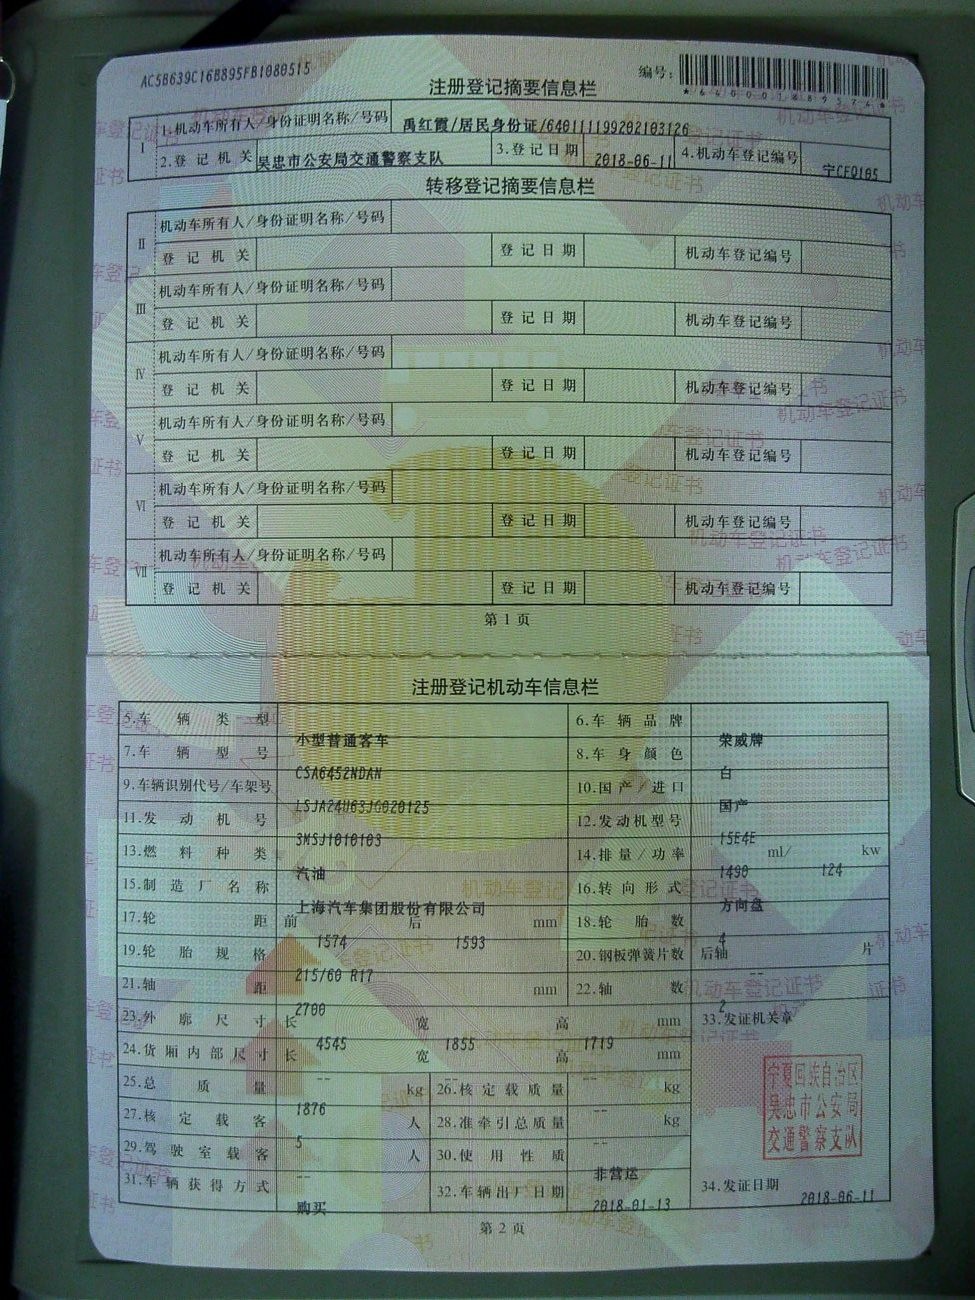 AC5B639C16B895FB1080515
注册登记摘要信息栏
编号:
*640001689574*
Ⅰ 1.机动车所有人/身份证明名称/号码 禹红霞/居民身份证/640111199202103126
2.登记机关 吴忠市公安局交通警察支队 3.登记日期 2018-06-11 4.机动车登记编号 宁CFQ105
转移登记摘要信息栏
Ⅱ 机动车所有人/身份证明名称/号码
登记机关 登记日期 机动车登记编号
Ⅲ 机动车所有人/身份证明名称/号码
登记机关 登记日期 机动车登记编号
Ⅳ 机动车所有人/身份证明名称/号码
登记机关 登记日期 机动车登记编号
Ⅴ 机动车所有人/身份证明名称/号码
登记机关 登记日期 机动车登记编号
Ⅵ 机动车所有人/身份证明名称/号码
登记机关 登记日期 机动车登记编号
Ⅶ 机动车所有人/身份证明名称/号码
登记机关 登记日期 机动车登记编号
第1页
注册登记机动车信息栏
5.车辆类型 小型普通客车 6.车辆品牌 荣威牌
7.车辆型号 CSA6452NDAN 8.车身颜色 白
9.车辆识别代号/车架号 LSJA24U63JG020125 10.国产/进口 国产
11.发动机号 3MSJ1010103 12.发动机型号 15E4E
13.燃料种类 汽油 14.排量/功率 1490 ml/ 124 kw
15.制造厂名称 上海汽车集团股份有限公司 16.转向形式 方向盘
17.轮距 前 1574 后 1593 mm 18.轮胎数 4
19.轮胎规格 215/60 R17 20.钢板弹簧片数 后轴 -- 片
21.轴距 2700 mm 22.轴数 2
23.外廓尺寸 长 4545 宽 1855 高 1719 mm 33.发证机关章
24.货厢内部尺寸 长 -- 宽 -- 高 -- mm
25.总质量 1876 kg 26.核定载质量 -- kg
27.核定载客 5 人 28.准牵引总质量 -- kg
29.驾驶室载客 -- 人 30.使用性质 非营运
31.车辆获得方式 购买 32.车辆出厂日期 2018-01-13 34.发证日期 2018-06-11
宁夏回族自治区
吴忠市公安局
交通警察支队
第2页